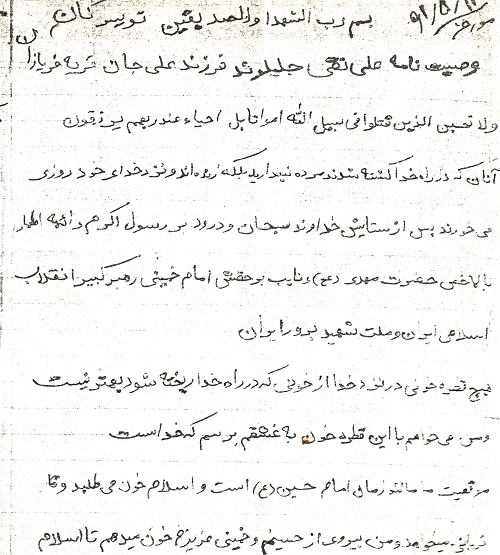 بسم رب الشهدا والصدیقین
وصیت نامه علی نقی جلیلوند فرزند علی جان قریه
ولا تحسبن الذین قتلوا فی سبیل الله امواتا بل احیاء عند ربهم یرزقون
آنان که در راه خدا کشته شدند مرده نپندارید بلکه زنده اند و نزد خدای خود روزی
می خورند پس از ستایش خداوند سبحان و درود بر رسول اکرم و ائمه اطهار
بالاخص حضرت مهدی (عج) و نایب برحقش امام خمینی رهبر کبیر انقلاب
اسلامی ایران و ملت شهید پرور ایران
هیچ قطره خونی در نزد خدا از خونی که در راه خدا ریخته شود بهتر نیست
ومن می خواهم با این قطره خون به عشقم برسم که خداست
موقعیت ما مانند زمان امام حسین (ع) است و اسلام خون می طلبد و ما
میخواهد و من پیروی از حسینم و خمینی عزیزم خون میدهم تا اسلام